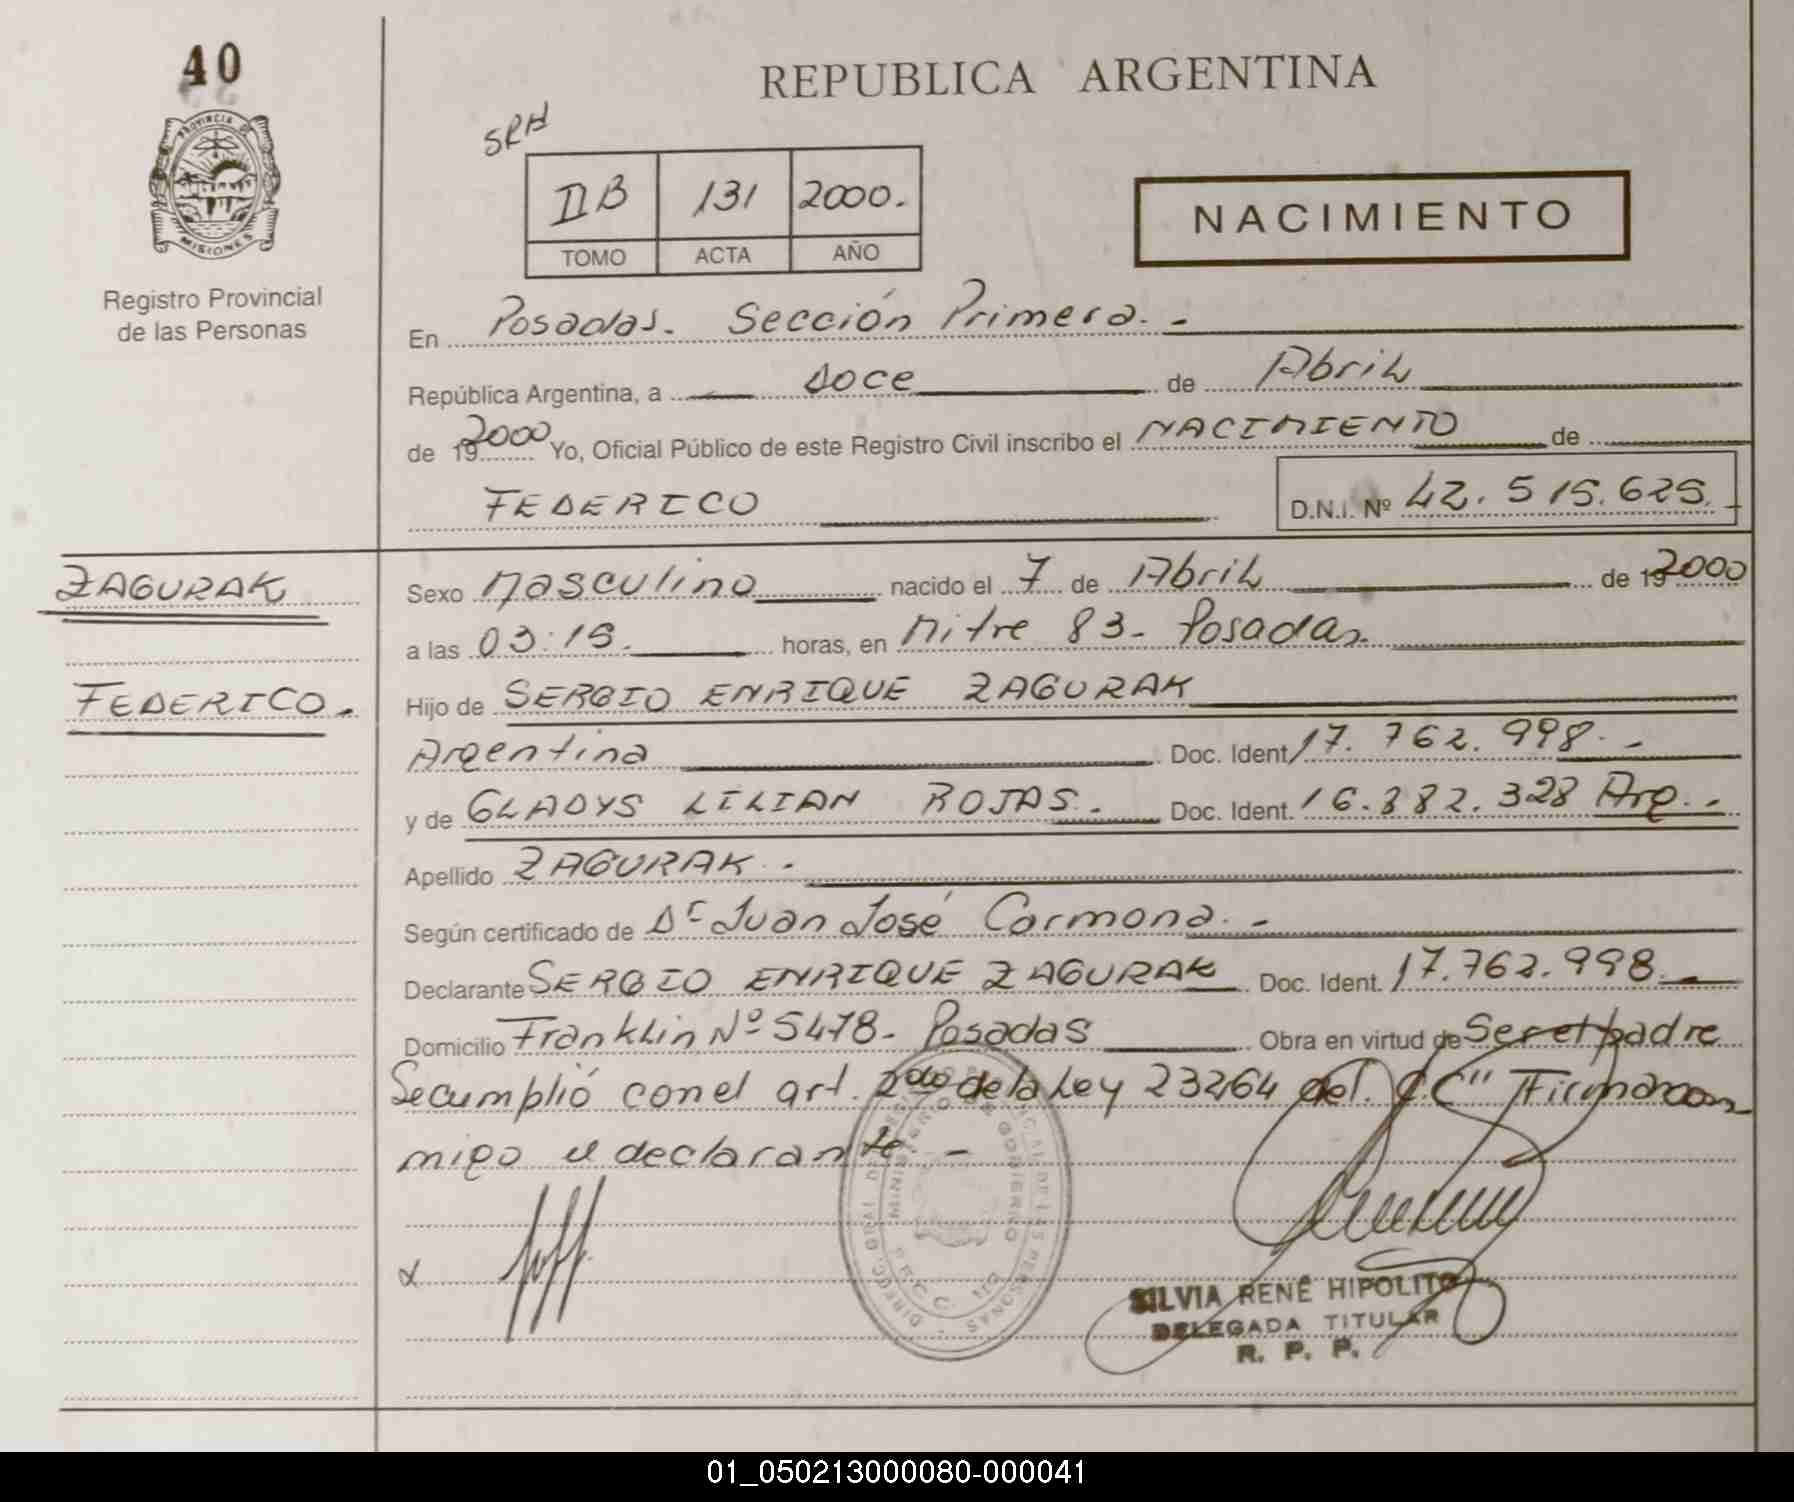 40
REPUBLICA ARGENTINA
SRH
PROVINCIA DE
MISIONES
IIB 131 2000.
TOMO ACTA AÑO
NACIMIENTO
Registro Provincial
de las Personas
En Posadas. Sección Primera. -
República Argentina, a doce de Abril
de 19 2000 Yo, Oficial Público de este Registro Civil inscribo el NACIMIENTO de
FEDERICO D.N.I. Nº 42.515.625.
ZAGURAK
Sexo Masculino nacido el 7 de Abril de 19 2000
a las 03:15. horas, en Mitre 83- Posadas.
FEDERICO.
Hijo de SERGIO ENRIQUE ZAGURAK
Argentina Doc. Ident. 17.762.998. -
y de GLADYS LILIAN ROJAS. Doc. Ident. 16.382.328 Arg. -
Apellido ZAGURAK. -
Según certificado de Dr Juan José Carmona. -
Declarante SERGIO ENRIQUE ZAGURAK Doc. Ident. 17.762.998.
Domicilio Franklin Nº 5478- Posadas Obra en virtud de Ser el padre
Se cumplió con el art. 2do de la Ley 23264 del C.C" Firma con
migo el declarante -
MINISTERIO DE GOBIERNO
SILVIA RENÉ HIPOLITO
DELEGADA TITULAR
R. P. P.
01_050213000080-000041